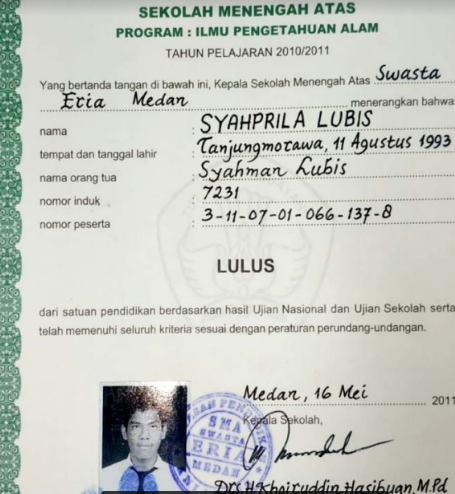 SEKOLAH MENENGAH ATAS
PROGRAM : ILMU PENGETAHUAN ALAM
TAHUN PELAJARAN 2010/2011
Yang bertanda tangan di bawah ini, Kepala Sekolah Menengah Atas Swasta
Eria Medan menerangkan bahwa
nama : SYAHPRILA LUBIS
tempat dan tanggal lahir : Tanjungmorawa, 11 Agustus 1993
nama orang tua : Syahman Lubis
nomor induk : 7231
nomor peserta : 3-11-07-01-066-137-8
LULUS
dari satuan pendidikan berdasarkan hasil Ujian Nasional dan Ujian Sekolah serta
telah memenuhi seluruh kriteria sesuai dengan peraturan perundang-undangan.
Medan, 16 Mei 2011
Kepala Sekolah,
SMA
SWASTA
ERIA
MEDAN
Drs H Khairuddin Hasibuan, M.Pd